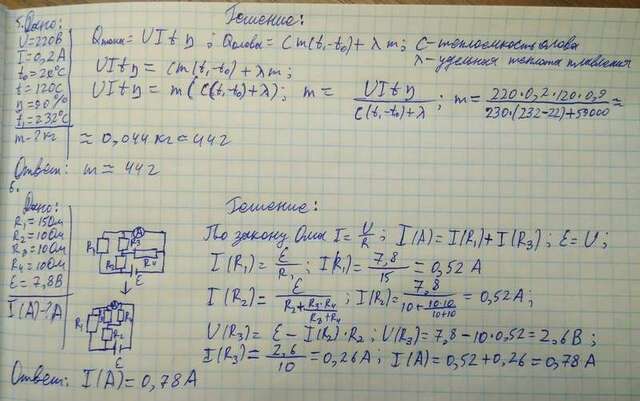 5. Дано:
U=220В
I=0,2А
t₀=22°С
t=120с
η=90%
t₁=232°С
m-? кг
Решение:
Qтока = UItη; Qолова = Cm(t₁-t₀)+λm; C-теплоемкость олова
λ-удельная теплота плавления
UItη = Cm(t₁-t₀)+λm;
UItη = m(C(t₁-t₀)+λ); m = UItη / C(t₁-t₀)+λ; m = 220·0,2·120·0,9 / 230·(232-22)+59000 ≈
≈ 0,044 кг = 44г
Ответ: m ≈ 44г
6.
Дано:
R₁=15Ом
R₂=10Ом
R₃=10Ом
R₄=10Ом
ε=7,8В
I(A)-?А
A
R₁
R₃
R₂
R₄
ε
R₁
R₃
R₄
R₂
ε
Решение:
По закону Ома I = U/R; I(A)=I(R₁)+I(R₃); ε=U;
I(R₁) = ε/R₁; I(R₁) = 7,8/15 = 0,52А
I(R₂) = ε / R₂+R₃·R₄/R₃+R₄; I(R₂) = 7,8 / 10+10·10/10+10 = 0,52А;
U(R₃) = ε - I(R₂)·R₂; U(R₃)=7,8-10·0,52=2,6В;
I(R₃) = 2,6/10 = 0,26А; I(A)=0,52+0,26=0,78А
Ответ: I(A)=0,78А